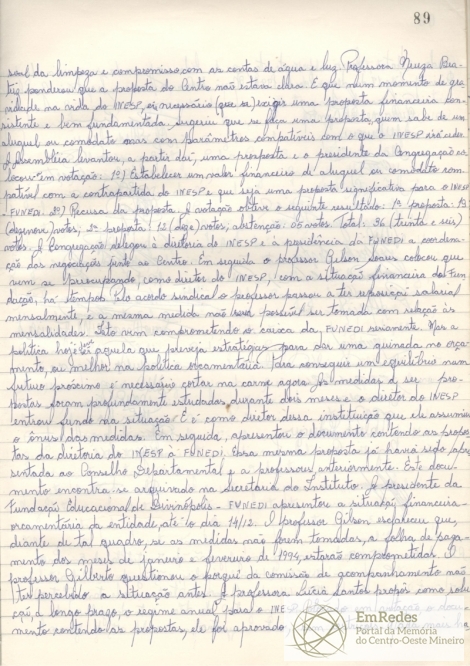 89
soal da limpeza e compromisso com as contas de água e luz. Professora Nereza Bea-
triz ponderou que a proposta do Centro não estava clara. E que num momento de gra-
vidade na vida do INESP, é necessário que se exigir uma proposta financeira con-
sistente e bem fundamentada. Sugeriu que se faça uma proposta, quem sabe de um
aluguel ou comodato mas com parâmetros compatíveis com o que o INESP irá ceder.
A Assembléia levantou, a partir daí, uma proposta e o presidente da Congregação co-
locou em votação: 1º) Estabelecer um valor financeiro de aluguel ou comodato com-
patível com a contrapartida do INESP e que seja uma proposta significativa para o INESP
FUNEDI. 2º) Recusa da proposta. A votação obteve o seguinte resultado: 1ª proposta: 19
(dezenove) votos, 2ª proposta: 12 (doze) votos, abstenção: 05 votos. Total: 36 (trinta e seis)
votos. A Congregação delegou à diretoria do INESP e à presidência da FUNEDI a coordena-
ção das negociações junto ao Centro. Em seguida o professor Gilson Soares colocou que
vem se preocupando, como diretor do INESP, com a situação financeira da Fun-
dação, há tempos. Pelo acordo sindical o professor passou a ter reposição salarial
mensalmente, e a mesma medida não foi possível ser tomada com relação às
mensalidades. Isto vem comprometendo o caixa da FUNEDI seriamente. Mas a
política hoje é aquela que preveja estratégias para dar uma guinada no orça-
mento, ou melhor na política orçamentária. Para conseguir um equilíbrio num
futuro próximo é necessário cortar na carne agora. As medidas a ser pro-
postas foram profundamente estudadas durante dois meses e o diretor do INESP
entrou fundo na situação. E é como diretor dessa instituição que ele assumiu
o ônus das medidas. Em seguida, apresentou o documento contendo as propos-
tas da diretoria do INESP à FUNEDI. Essa mesma proposta já havia sido apre-
sentada ao Conselho Departamental e a professores, anteriormente. Este docu-
mento encontra-se arquivado na secretaria do Instituto. O presidente da
Fundação Educacional de Divinópolis - FUNEDI apresentou a situação financeira-
orçamentária da entidade, até o dia 14/12. O professor Gilson esclareceu que,
diante de tal quadro, se as medidas não forem tomadas, a folha de paga-
mento dos meses de janeiro e fevereiro de 1994, estarão comprometidas. O
professor Gilberto questionou o porquê da comissão de acompanhamento não
ter percebido a situação antes. A professora Lúcia Santos propôs como solu-
ção, a longo prazo, o regime anual para o INE
mento contendo as propostas, ele foi aprovado
EmRedes
Portal da Memória
do Centro-Oeste Mineiro